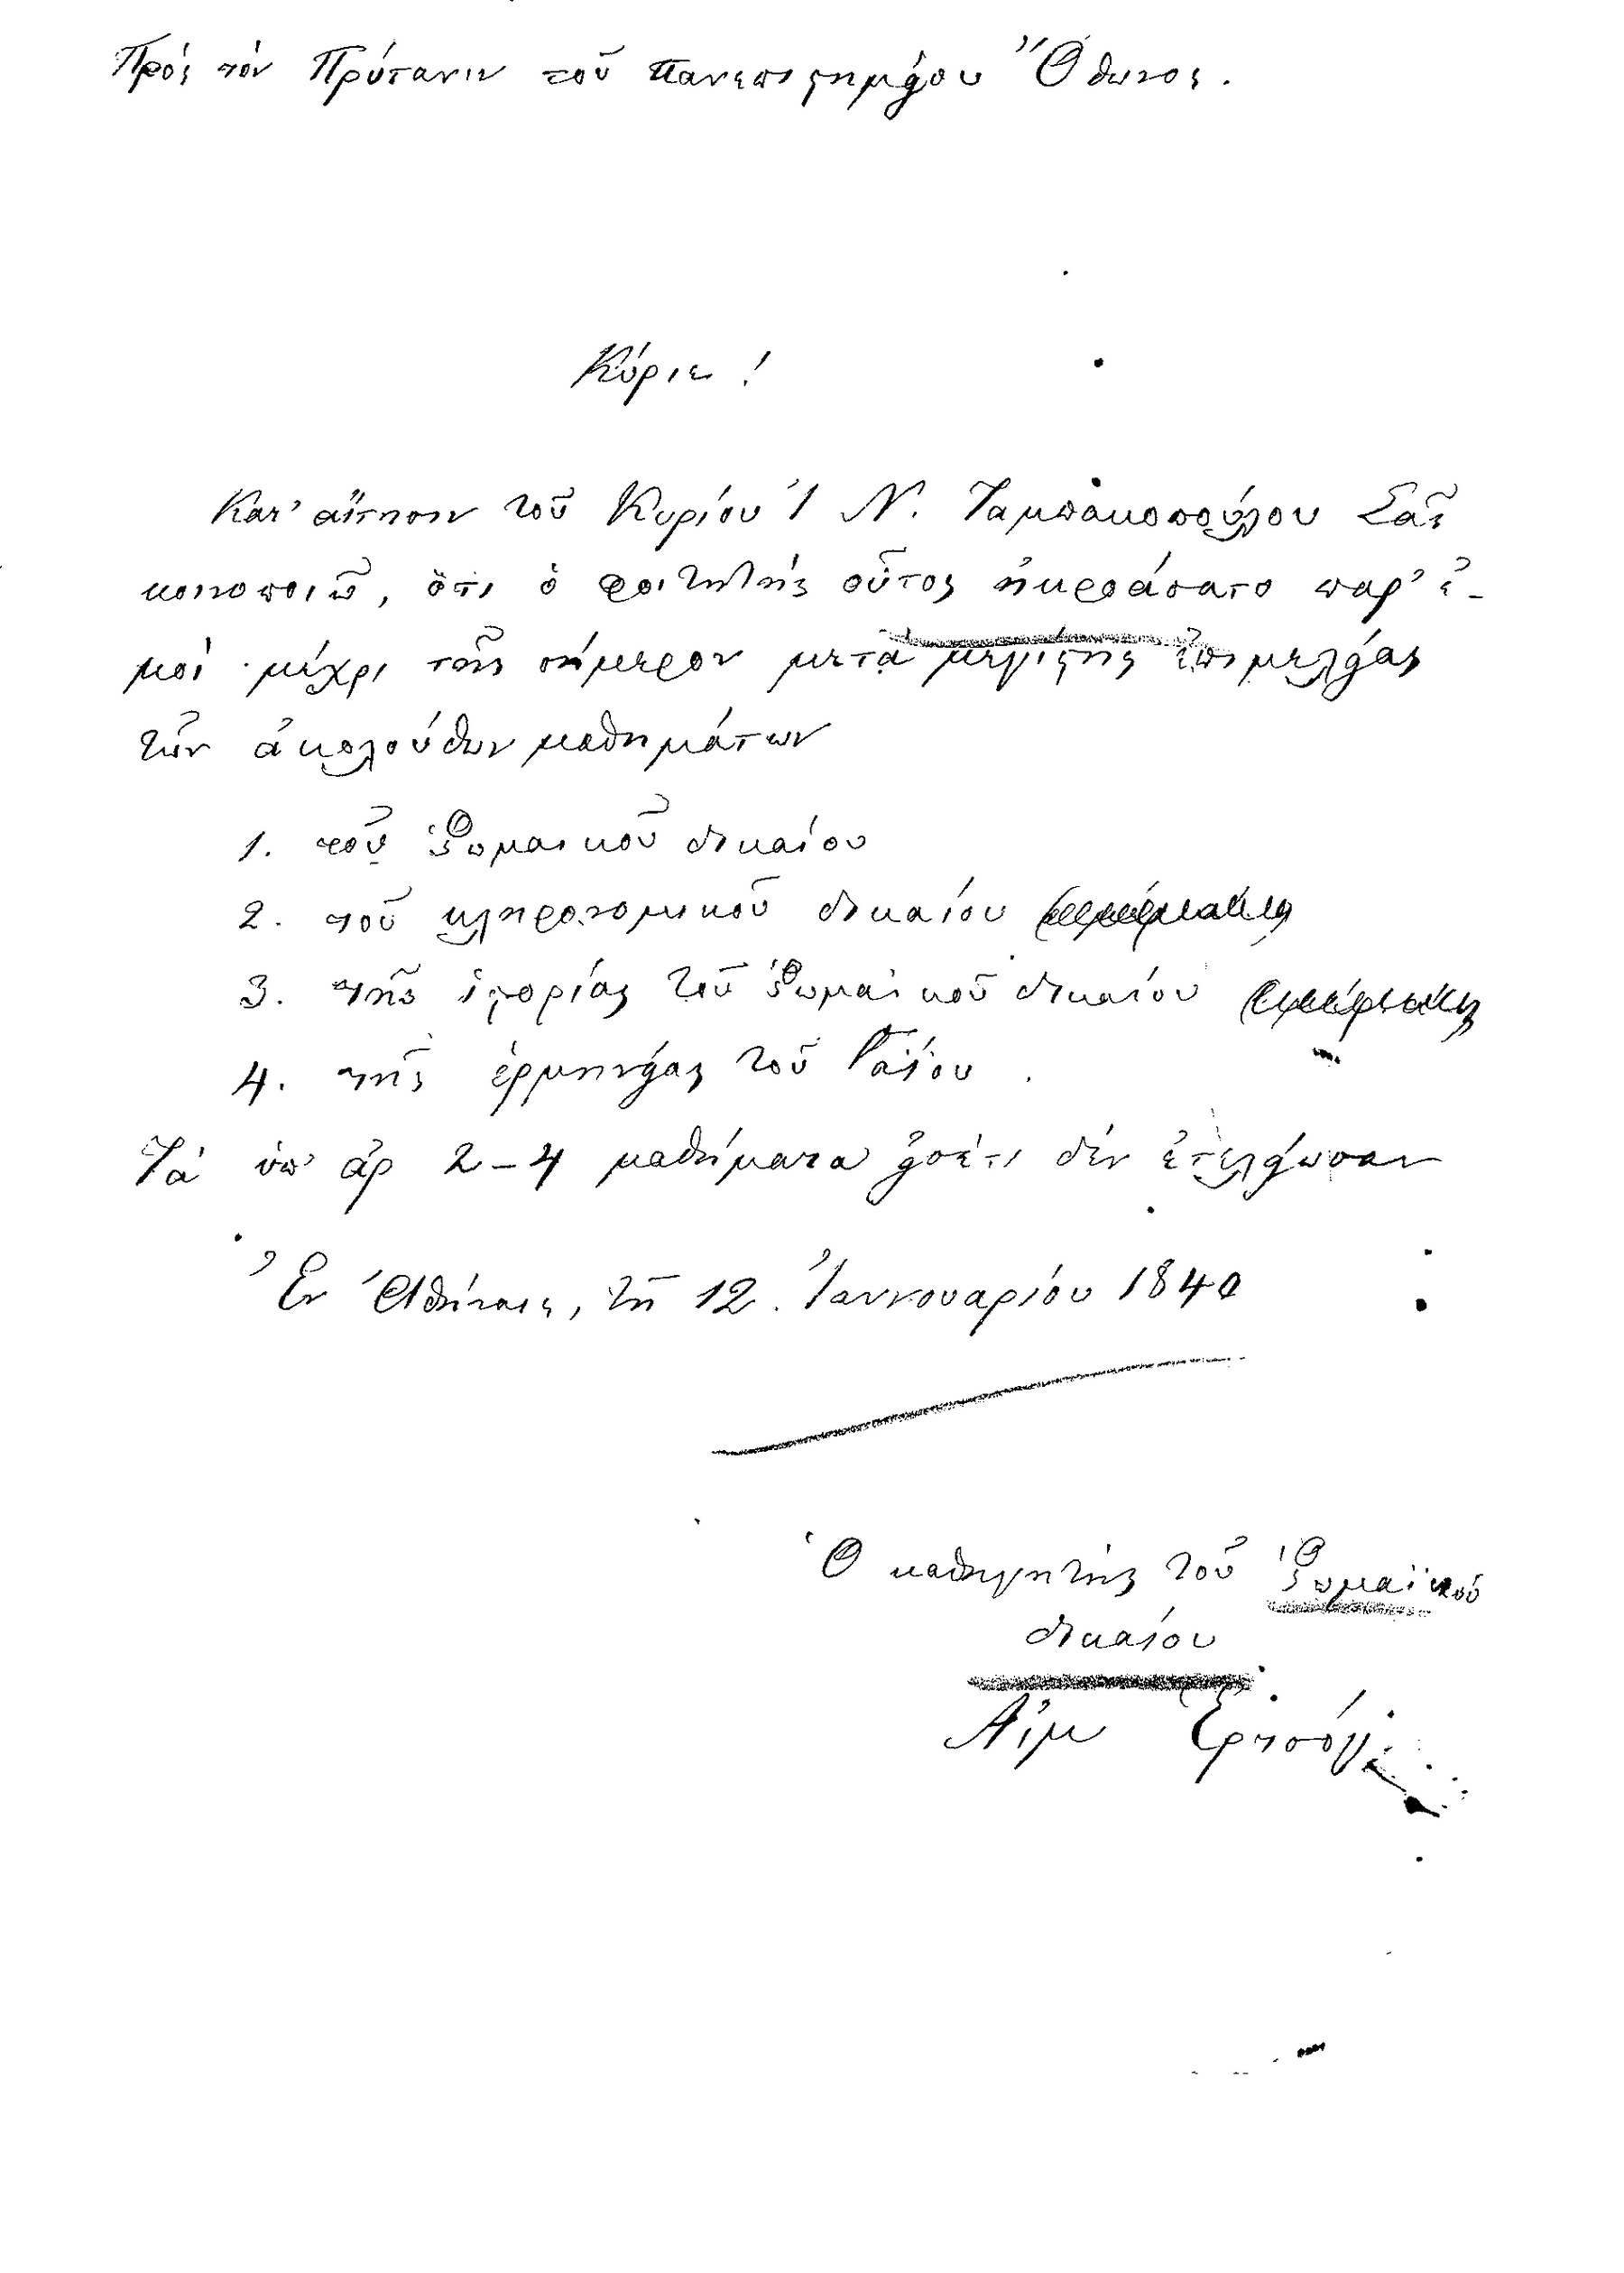 Πρός τόν Πρύτανιν τοῦ Πανεπιϛημείου Ὄθωνος.
Κύριε!
Κατ' αἴτησιν τοῦ Κυρίου Ἰ Ν. Ταμπακοπούλου Σᾶς
κοινοποιῶ, ὅτι ὁ φοιτητής οὗτος ἠκροάσατο παρ' ἐ-
μοί μέχρι τῆς σήμερον μετά μεγίϛης ἐπιμελείας
τῶν ἀκολούθων μαθημάτων
1. τοῦ Ῥωμαικοῦ δικαίου
2. τοῦ κληρονομικοῦ δικαίου
3. τῆς ἱϛορίας τοῦ Ῥωμαϊκοῦ δικαίου
4. τῆς ἑρμηνείας τοῦ Γαΐου.
Τά ὑπ' ἀρ 2-4 μαθήματα εἰσέτι δέν ἐτελείωσαν
Ἐν Ἀθήναις, τῇ 12. Ἰαννουαρίου 1840
Ὁ καθηγητής τοῦ Ῥωμαϊκοῦ
δικαίου
Αἰμ Ἑρτσόγ